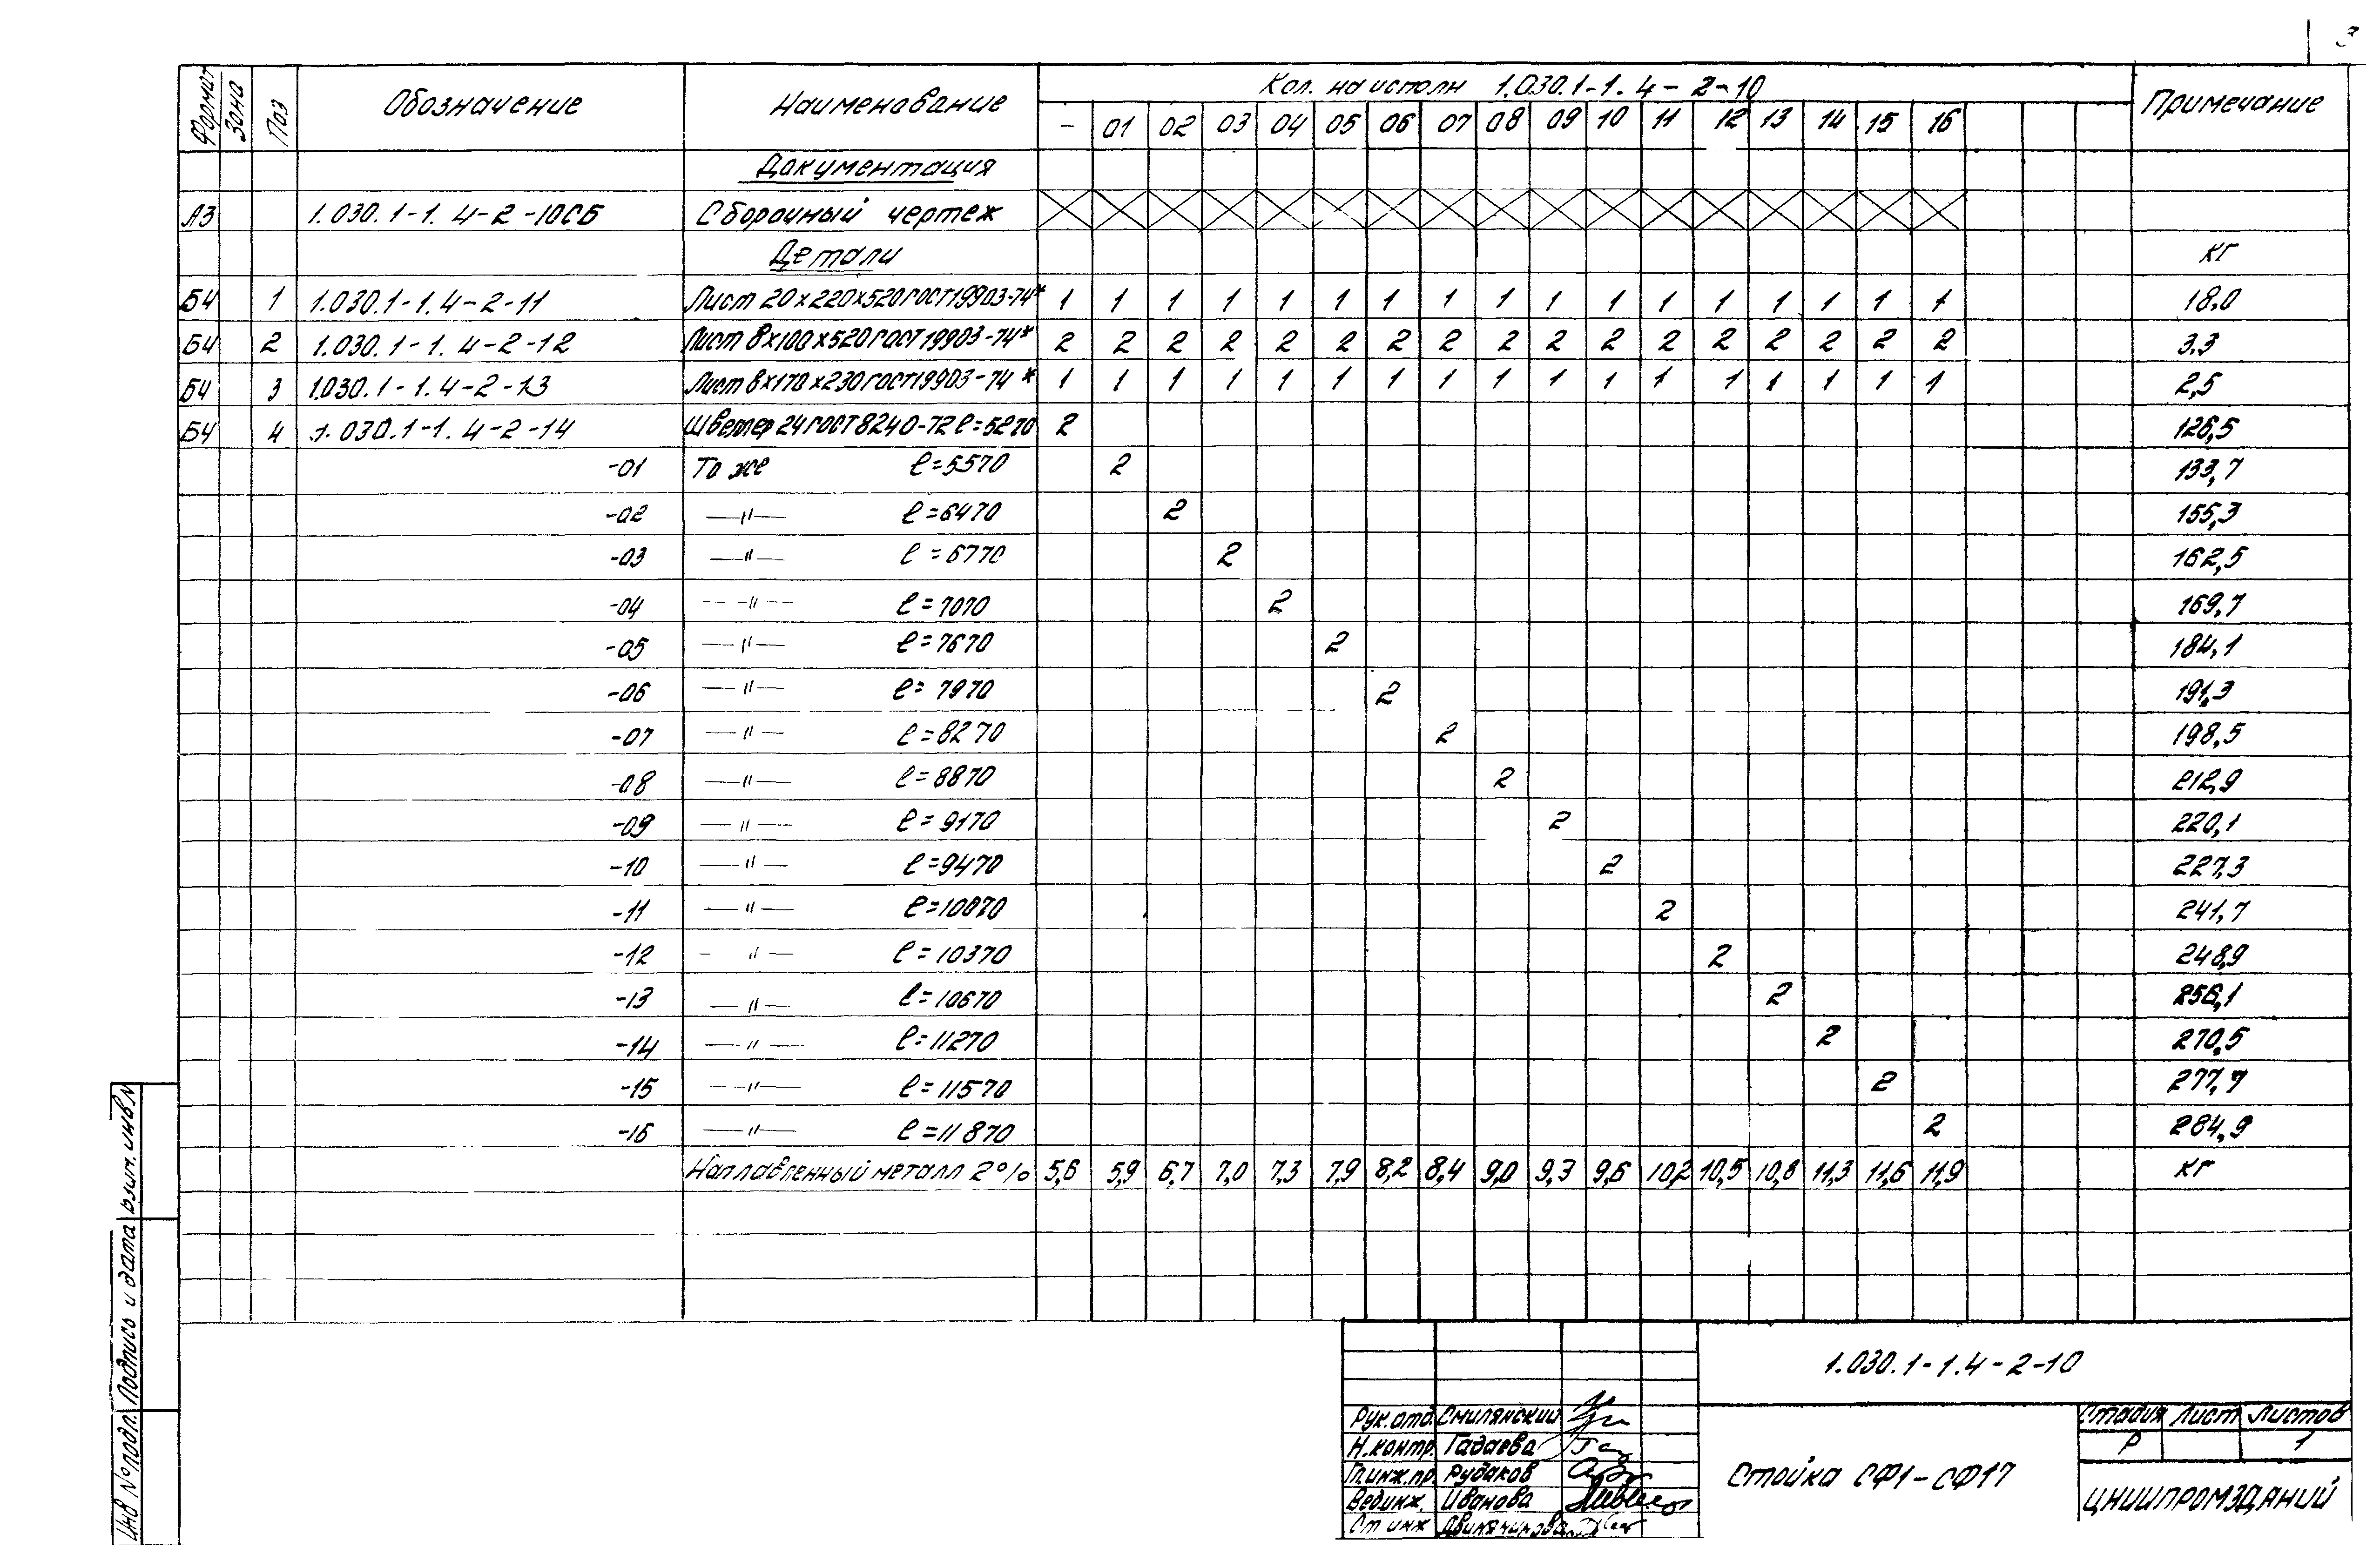 3
Формат Зона Поз Обозначение Наименование Кол. на исполн 1.030.1-1.4-2-10 Примечание
- 01 02 03 04 05 06 07 08 09 10 11 12 13 14 15 16
Документация
А3 1.030.1-1.4-2-10СБ Сборочный чертеж
Детали кг
Б4 1 1.030.1-1.4-2-11 Лист 20х220х520 ГОСТ 19903-74* 1 1 1 1 1 1 1 1 1 1 1 1 1 1 1 1 1 18,0
Б4 2 1.030.1-1.4-2-12 Лист 8х100х520 ГОСТ 19903-74* 2 2 2 2 2 2 2 2 2 2 2 2 2 2 2 2 2 3,3
Б4 3 1.030.1-1.4-2-13 Лист 8х170х230 ГОСТ 19903-74* 1 1 1 1 1 1 1 1 1 1 1 1 1 1 1 1 1 2,5
Б4 4 1.030.1-1.4-2-14 Швеллер 24 ГОСТ 8240-72 ℓ=5270 2 126,5
-01 То же ℓ=5570 2 133,7
-02 —"— ℓ=6470 2 155,3
-03 —"— ℓ=6770 2 162,5
-04 —"— ℓ=7070 2 169,7
-05 —"— ℓ=7670 2 184,1
-06 —"— ℓ=7970 2 191,3
-07 —"— ℓ=8270 2 198,5
-08 —"— ℓ=8870 2 212,9
-09 —"— ℓ=9170 2 220,1
-10 —"— ℓ=9470 2 227,3
-11 —"— ℓ=10070 2 241,7
-12 —"— ℓ=10370 2 248,9
-13 —"— ℓ=10670 2 256,1
-14 —"— ℓ=11270 2 270,5
-15 —"— ℓ=11570 2 277,7
-16 —"— ℓ=11870 2 284,9
Наплавленный металл 2% 5,6 5,9 6,7 7,0 7,3 7,9 8,2 8,4 9,0 9,3 9,6 10,2 10,5 10,8 11,3 11,6 11,9 кг
Инв № подл. Подпись и дата Взам. инв №
1.030.1-1.4-2-10
Рук. отд. Смилянский
Н. контр. Гадаева
Гл. инж. пр. Рудаков
Вед инж. Иванова
Ст инж
Стойка СФ1-СФ17
Стадия Лист Листов
Р 1
ЦНИИПРОМЗДАНИЙ